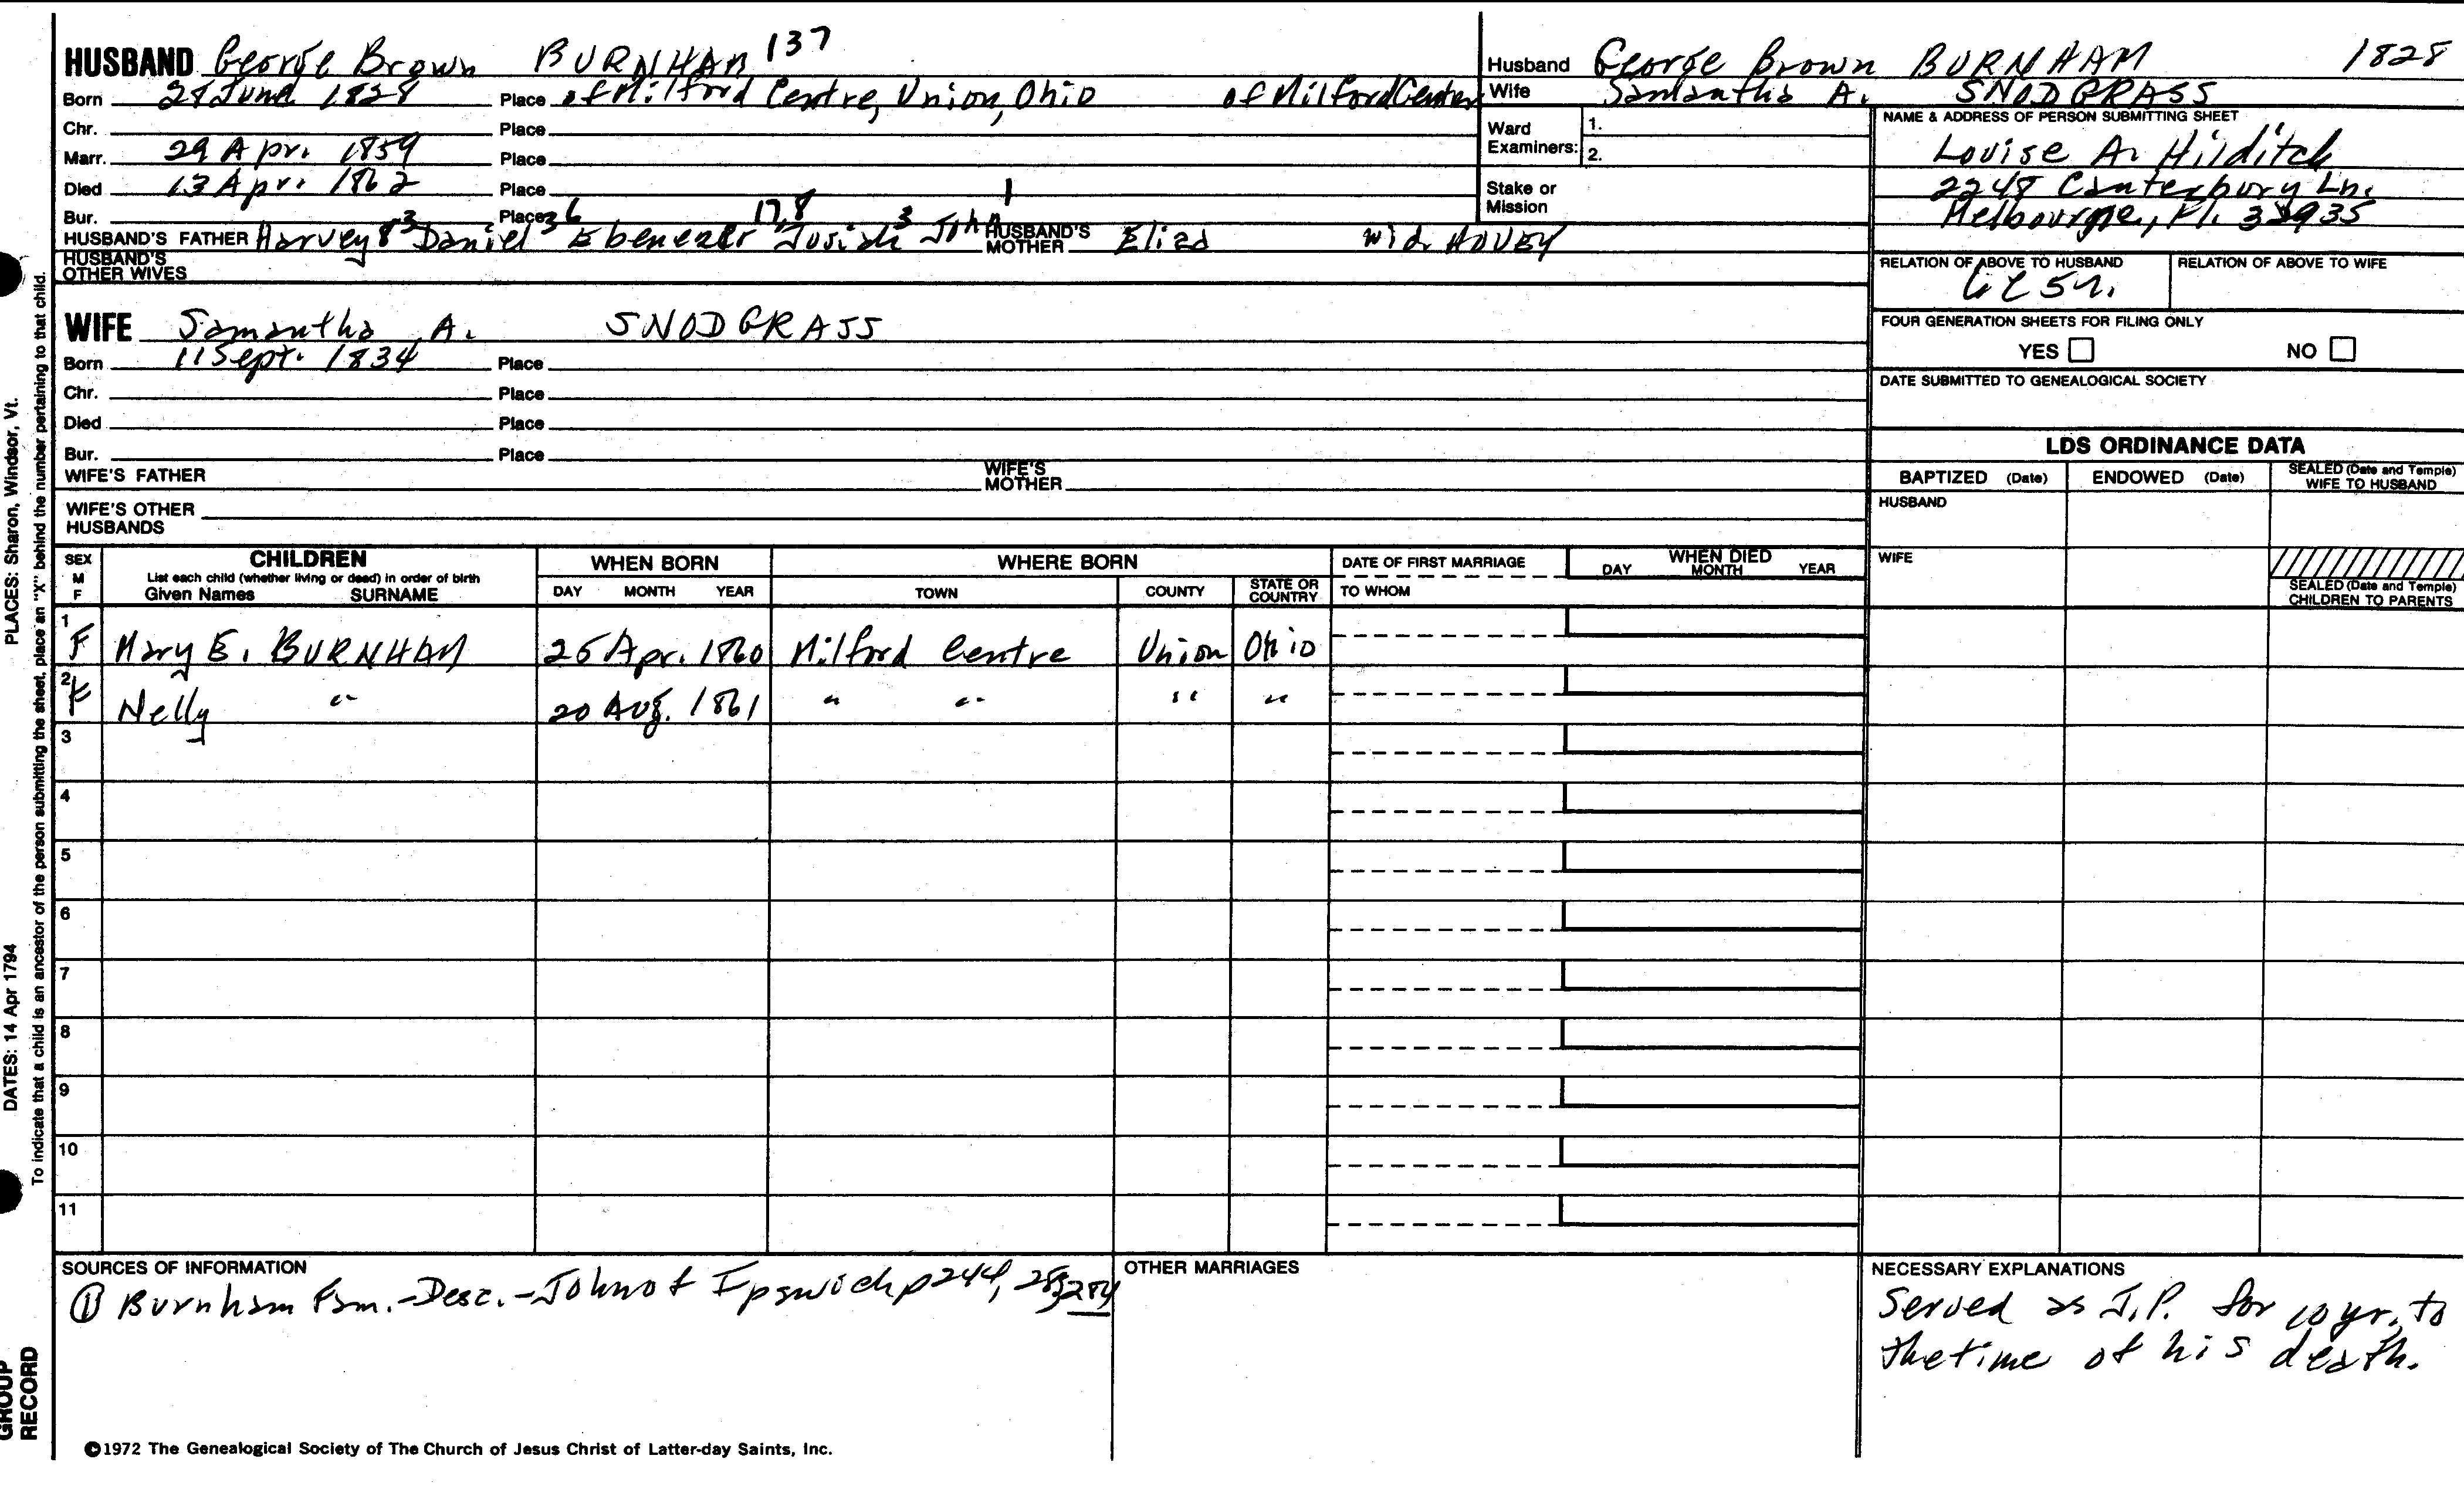 HUSBAND George Brown BURNHAM 137
Born 28 June 1828 Place of Milford Centre, Union, Ohio of Milford Center
Chr. Place
Marr. 29 Apr. 1859 Place
Died 13 Apr. 1862 Place
Bur. Place
HUSBAND'S FATHER Harvey 8 3 Daniel 36 Ebenezer 17,8 Josiah 3 John 1 HUSBAND'S MOTHER Eliza wid. HOVEY
HUSBAND'S OTHER WIVES
WIFE Samantha A. SNODGRASS
Born 11 Sept. 1834 Place
Chr. Place
Died Place
Bur. Place
WIFE'S FATHER WIFE'S MOTHER
WIFE'S OTHER HUSBANDS
Husband George Brown BURNHAM 1828
Wife Samantha A. SNODGRASS
Ward Examiners: 1.
2.
Stake or Mission
NAME & ADDRESS OF PERSON SUBMITTING SHEET
Louise A. Hilditch
2248 Canterbury Ln.
Melbourne, Fl.
RELATION OF ABOVE TO HUSBAND RELATION OF ABOVE TO WIFE
FOUR GENERATION SHEETS FOR FILING ONLY
YES NO
DATE SUBMITTED TO GENEALOGICAL SOCIETY
LDS ORDINANCE DATA
BAPTIZED (Date) ENDOWED (Date) SEALED (Date and Temple) WIFE TO HUSBAND
HUSBAND
WIFE
SEALED (Date and Temple) CHILDREN TO PARENTS
SEX M F
CHILDREN
List each child (whether living or dead) in order of birth
Given Names SURNAME
WHEN BORN
DAY MONTH YEAR
WHERE BORN
TOWN COUNTY STATE OR COUNTRY
DATE OF FIRST MARRIAGE
TO WHOM
WHEN DIED
DAY MONTH YEAR
1 F Mary E. BURNHAM 26 Apr. 1860 Milford Centre Union Ohio
2 F Nelly " 20 Aug. 1861 " " " "
3
4
5
6
7
8
9
10
11
SOURCES OF INFORMATION
① Burnham Fam.-Desc.-John of Ipswich p 244, 283, 284
OTHER MARRIAGES
NECESSARY EXPLANATIONS
Served as J.P. for 10 yr. to
the time of his death.
©1972 The Genealogical Society of The Church of Jesus Christ of Latter-day Saints, Inc.
PLACES: Sharon, Windsor, Vt.
DATES: 14 Apr 1794
To indicate that a child is an ancestor of the person submitting the sheet, place an "X" behind the number pertaining to that child.
GROUP
RECORD